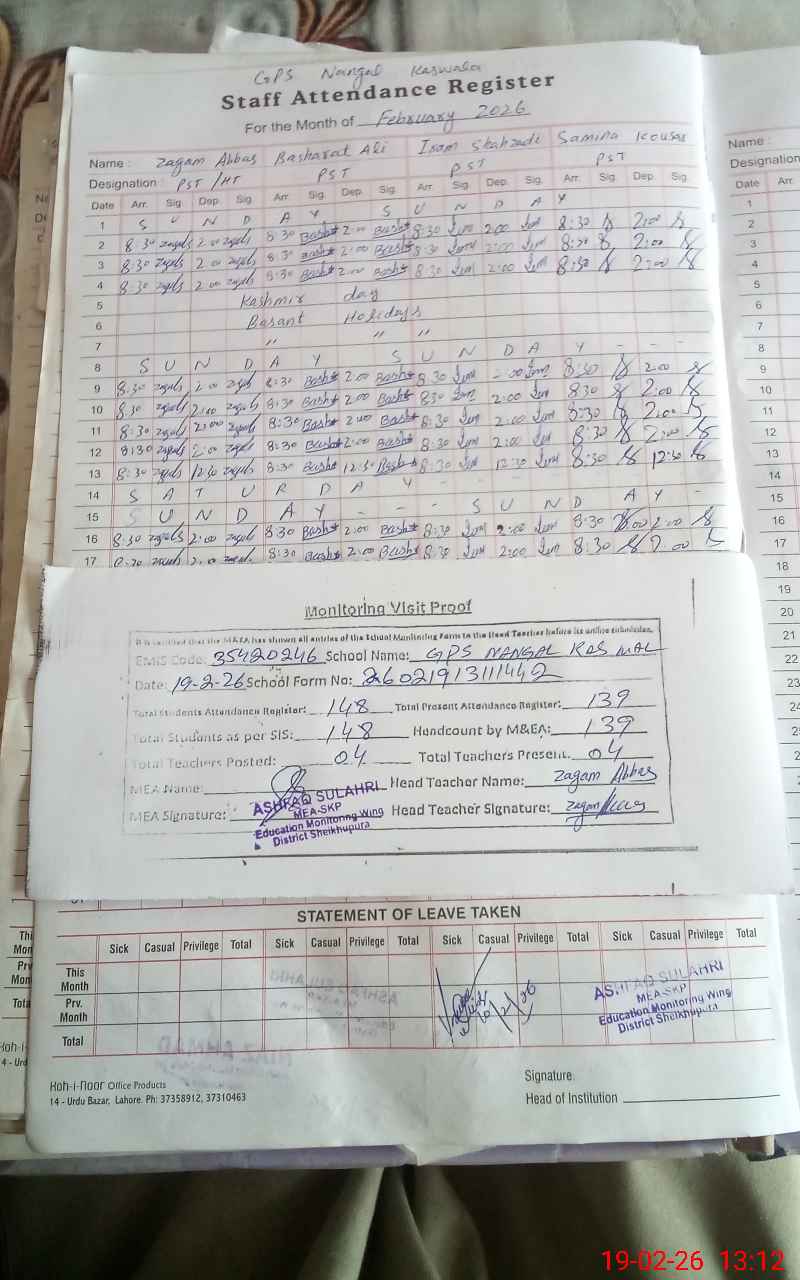 GPS Nangal Kaswala
Staff Attendance Register
For the Month of February 2026
Name : Zagam Abbas Basharat Ali Iram Shahzadi Samina Kousar
Designation : PST / HT PST PST PST
Date Arr. Sig. Dep. Sig. Arr. Sig. Dep. Sig. Arr. Sig. Dep. Sig. Arr. Sig. Dep. Sig.
1 S U N D A Y S U N D A Y
2 8:30 2:00 8:30 Basht 2:00 Basht 8:30 2:00 8:30 2:00
3 8:30 2:00 8:30 Basht 2:00 Basht 8:30 2:00 8:30 2:00
4 8:30 2:00 8:30 Basht 2:00 Basht 8:30 2:00 8:30 2:00
5 Kashmir day
6 Basant Holidays
7 " " "
8 S U N D A Y S U N D A Y - - -
9 8:30 2:00 8:30 Basht 2:00 Basht 8:30 2:00 8:30 2:00
10 8:30 2:00 8:30 Basht 2:00 Basht 8:30 2:00 8:30 2:00
11 8:30 2:00 8:30 Basht 2:00 Basht 8:30 2:00 8:30 2:00
12 8:30 2:00 8:30 Basht 2:00 Basht 8:30 2:00 8:30 2:00
13 8:30 12:30 8:30 Basht 12:30 Basht 8:30 12:30 8:30 12:30
14 S A T U R D A Y - - -
15 S U N D A Y - - - S U N D A Y -
16 8:30 2:00 8:30 Basht 2:00 Basht 8:30 2:00 8:30 2:00
17 8:30 2:00 8:30 Basht 2:00 Basht 8:30 2:00 8:30 2:00
Monitoring Visit Proof
It is certified that the M&EA has shown all entries of the School Monitoring Form to the Head Teacher before its online submission.
EMIS Code: 35420246 School Name: GPS NANGAL KAS WAL
Date: 19-2-26 School Form No: 26021913111442
Total Students Attendance Register: 148 Total Present Attendance Register: 139
Total Students as per SIS: 148 Headcount by M&EA: 139
Total Teachers Posted: 04 Total Teachers Present. 04
MEA Name: Head Teacher Name: Zagam Abbas
MEA Signature: Head Teacher Signature:
ASHFAQ SULAHRI
MEA-SKP
Education Monitoring Wing
District Sheikhupura
STATEMENT OF LEAVE TAKEN
Sick Casual Privilege Total Sick Casual Privilege Total Sick Casual Privilege Total Sick Casual Privilege Total
This Month
Prv. Month
Total
10/2/26
ASHFAQ SULAHRI
MEA-SKP
Education Monitoring Wing
District Sheikhupura
Koh-i-noor Office Products
14 - Urdu Bazar, Lahore. Ph: 37358912, 37310463
Signature.
Head of Institution
Name :
Designation
Date Arr.
1
2
3
4
5
6
7
8
9
10
11
12
13
14
15
16
17
18
19
20
21
22
23
19-02-26 13:12